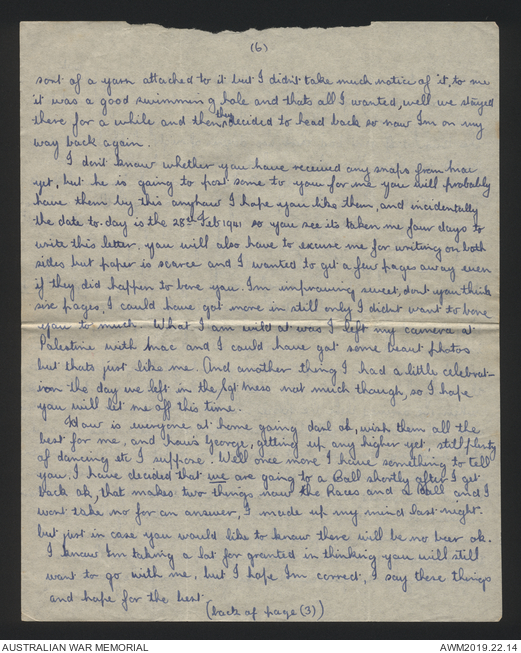 (6)
sort of a yarn attached to it but I didn't take much notice of it, to me
it was a good swimming hole and thats all I wanted, well we stayed
there for a while and then they decided to head back so now Im on my
way back again.
I don't know whether you have received any snaps from Mac
yet, but he is going to post some to you for me you will probably
have them by this anyhaw I hope you like them, and incidentally
the date to-day is the 28th Feb 1941 so you see its taken me four days to
write this letter, you will also have to excuse me for writing on both
sides but paper is scarce and I wanted to get a few pages away even
if they did happen to bore you. Im improving sweet, dont you think
six pages, I could have got more in still only I didnt want to bore
you to much. What I am wild at was I left my camera at
Palestine with Mac and I could have got some beaut photos
but thats just like me. And another thing I had a little celebrat-
ion the day we left in the Sgt Mess not much though, so I hope
you will let me off this time.
How is everyone at home going darl ok, wish them all the
best for me, and haws George, getting up any higher yet, still plenty
of dancing etc I suppose. Well once more I have something to tell
you, I have decided that we are going to a Ball shortly after I get
back ok, that makes two things now the Races and a Ball and I
wont take no for an answer, I made up my mind last night.
but just in case you would like to know there will be no beer ok.
I know Im taking a lot for granted in thinking you will still
want to go with me, but I hope Im correct, I say these things
and hope for the best
(back of page (3))
AUSTRALIAN WAR MEMORIAL
AWM2019.22.14